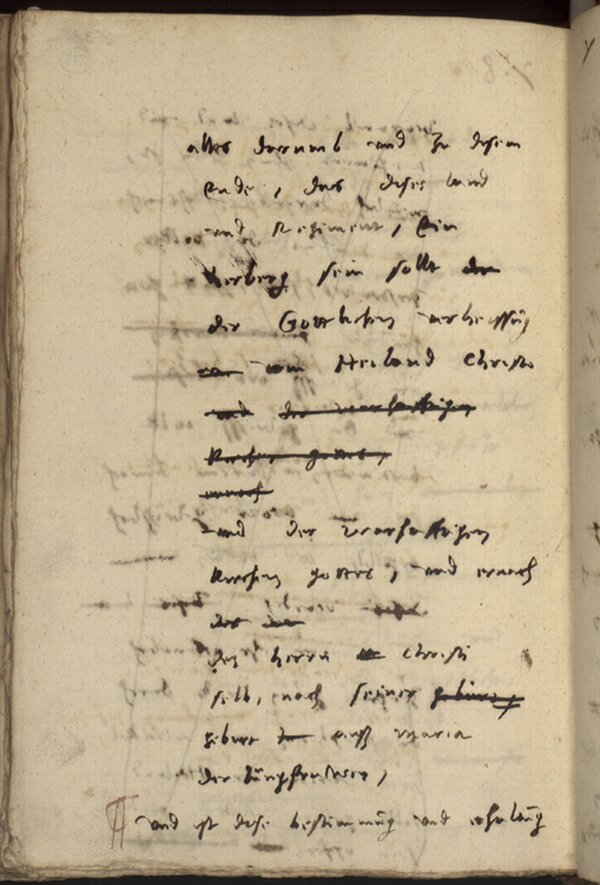 alles darumb und zu disem
Ende, das dises land
und Regiment, Ein
Herberg sein sollt der
der Gottlichen verheissung
von Heiland Christo
und der warhafftigen
kirchen gottes,
ernach
und der warhafftigen
kirchen gottes, und ernach
des
des herrn Christi
selb, nach seiner geburt,
geburt auß Maria
der Jungfrawen,
und ist dise bestimmung und erhaltung